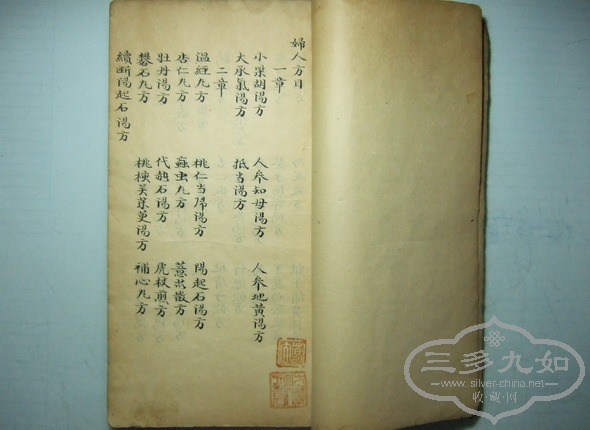 婦人方目
一章
小柴胡湯方 人参知母湯方 人参地黄湯方
大承氣湯方 抵当湯方
二章
温經丸方 桃仁当帰湯方 陽起石湯方
杏仁丸方 蝱虫丸方 薏苡散方
牡丹湯方 代赭石湯方 虎杖煎方
礬石丸方 桃梗吴茱萸湯方 補心丸方
續断陽起石湯方
三多九如
www.silver-china.net
收藏网